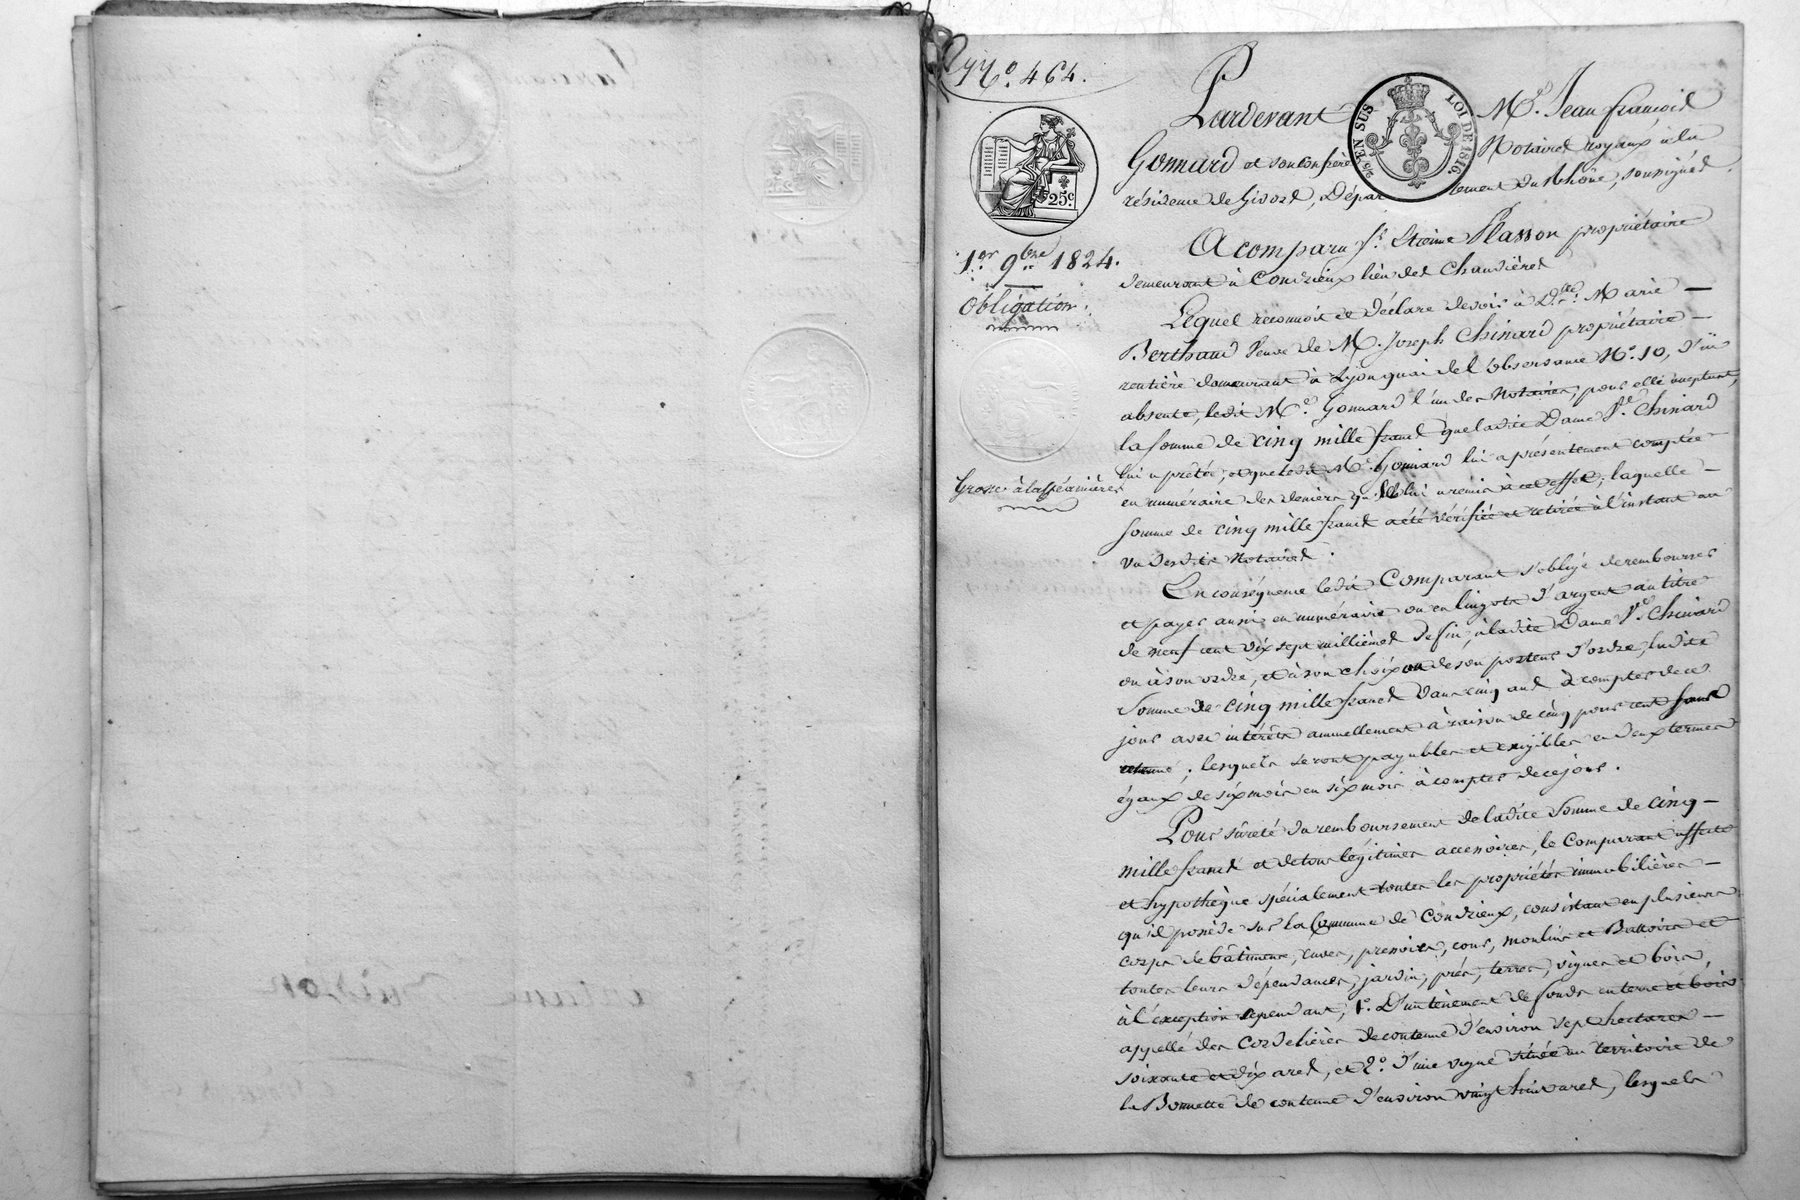 N.º 464.
25.c
1.er 9bre 1824.
Obligation
Grosse à la créancière
Pardevant Mᵉ. Jean françois
2/10 EN SUS
LOI DE 1816.
Gonnard et son confrère Notaires royaux à la
résidence de Givors, Département du Rhône, soussignés
A comparu S.r Etienne Plasson propriétaire
demeurant à Condrieux lieu des Chaudières
Lequel reconnoit et déclare devoir à D.e Marie —
Berthaud Veuve de M. Joseph Chinard propriétaire —
rentière demeurant à Lyon quai de l'observance N.º 10, d'ici
absente, ledit M.e Gonnard l'un des Notaires, pour elle acceptant,
la somme de cinq mille francs que ladite Dame V.e Chinard
lui a prêtée, et que ledit M.e Gonnard lui a présentement comptée
en numéraire des deniers qu'elle lui a remis à cet effet, laquelle —
somme de cinq mille francs a été vérifiée et retirée à l'instant au
vu desdits Notaires.
En conséquence ledit Comparant s'oblige de rembourser
et payer aussi en numéraire ou en lingots d'argent au titre
de neuf cent dix sept millièmes de fin, à ladite Dame V.e Chinard
ou à son ordre, et à son choix ou de son porteur d'ordre, ladite
Somme de cinq mille francs dans cinq ans à compter de ce
jour avec intérêts annuellement à raison de cinq pour cent sans
retenue ; lesquels seront payables et exigibles en deux termes
égaux de six mois en six mois à compter de ce jour.
Pour sûreté du remboursement de ladite Somme de cinq —
mille francs et de tous légitimes accessoires, le Comparant affecte
et hypothèque spécialement toutes les propriétés immobilières —
qu'il possède sur la Commune de Condrieux, consistant en plusieurs
corps de bâtimens, cuves, pressoirs, cour, moulins et Battoirs et
toutes leurs dépendances, jardin, prés, terres, vignes et bois,
à l'exception cependant, 1.º D'un tènement de fonds en terre et bois
appellé des Cordelières de contenue d'environ sept hectares —
soixante et dix ares, et 2.º d'une vigne située au territoire de
la Bonnette de contenue d'environ vingt huit ares, lesquels